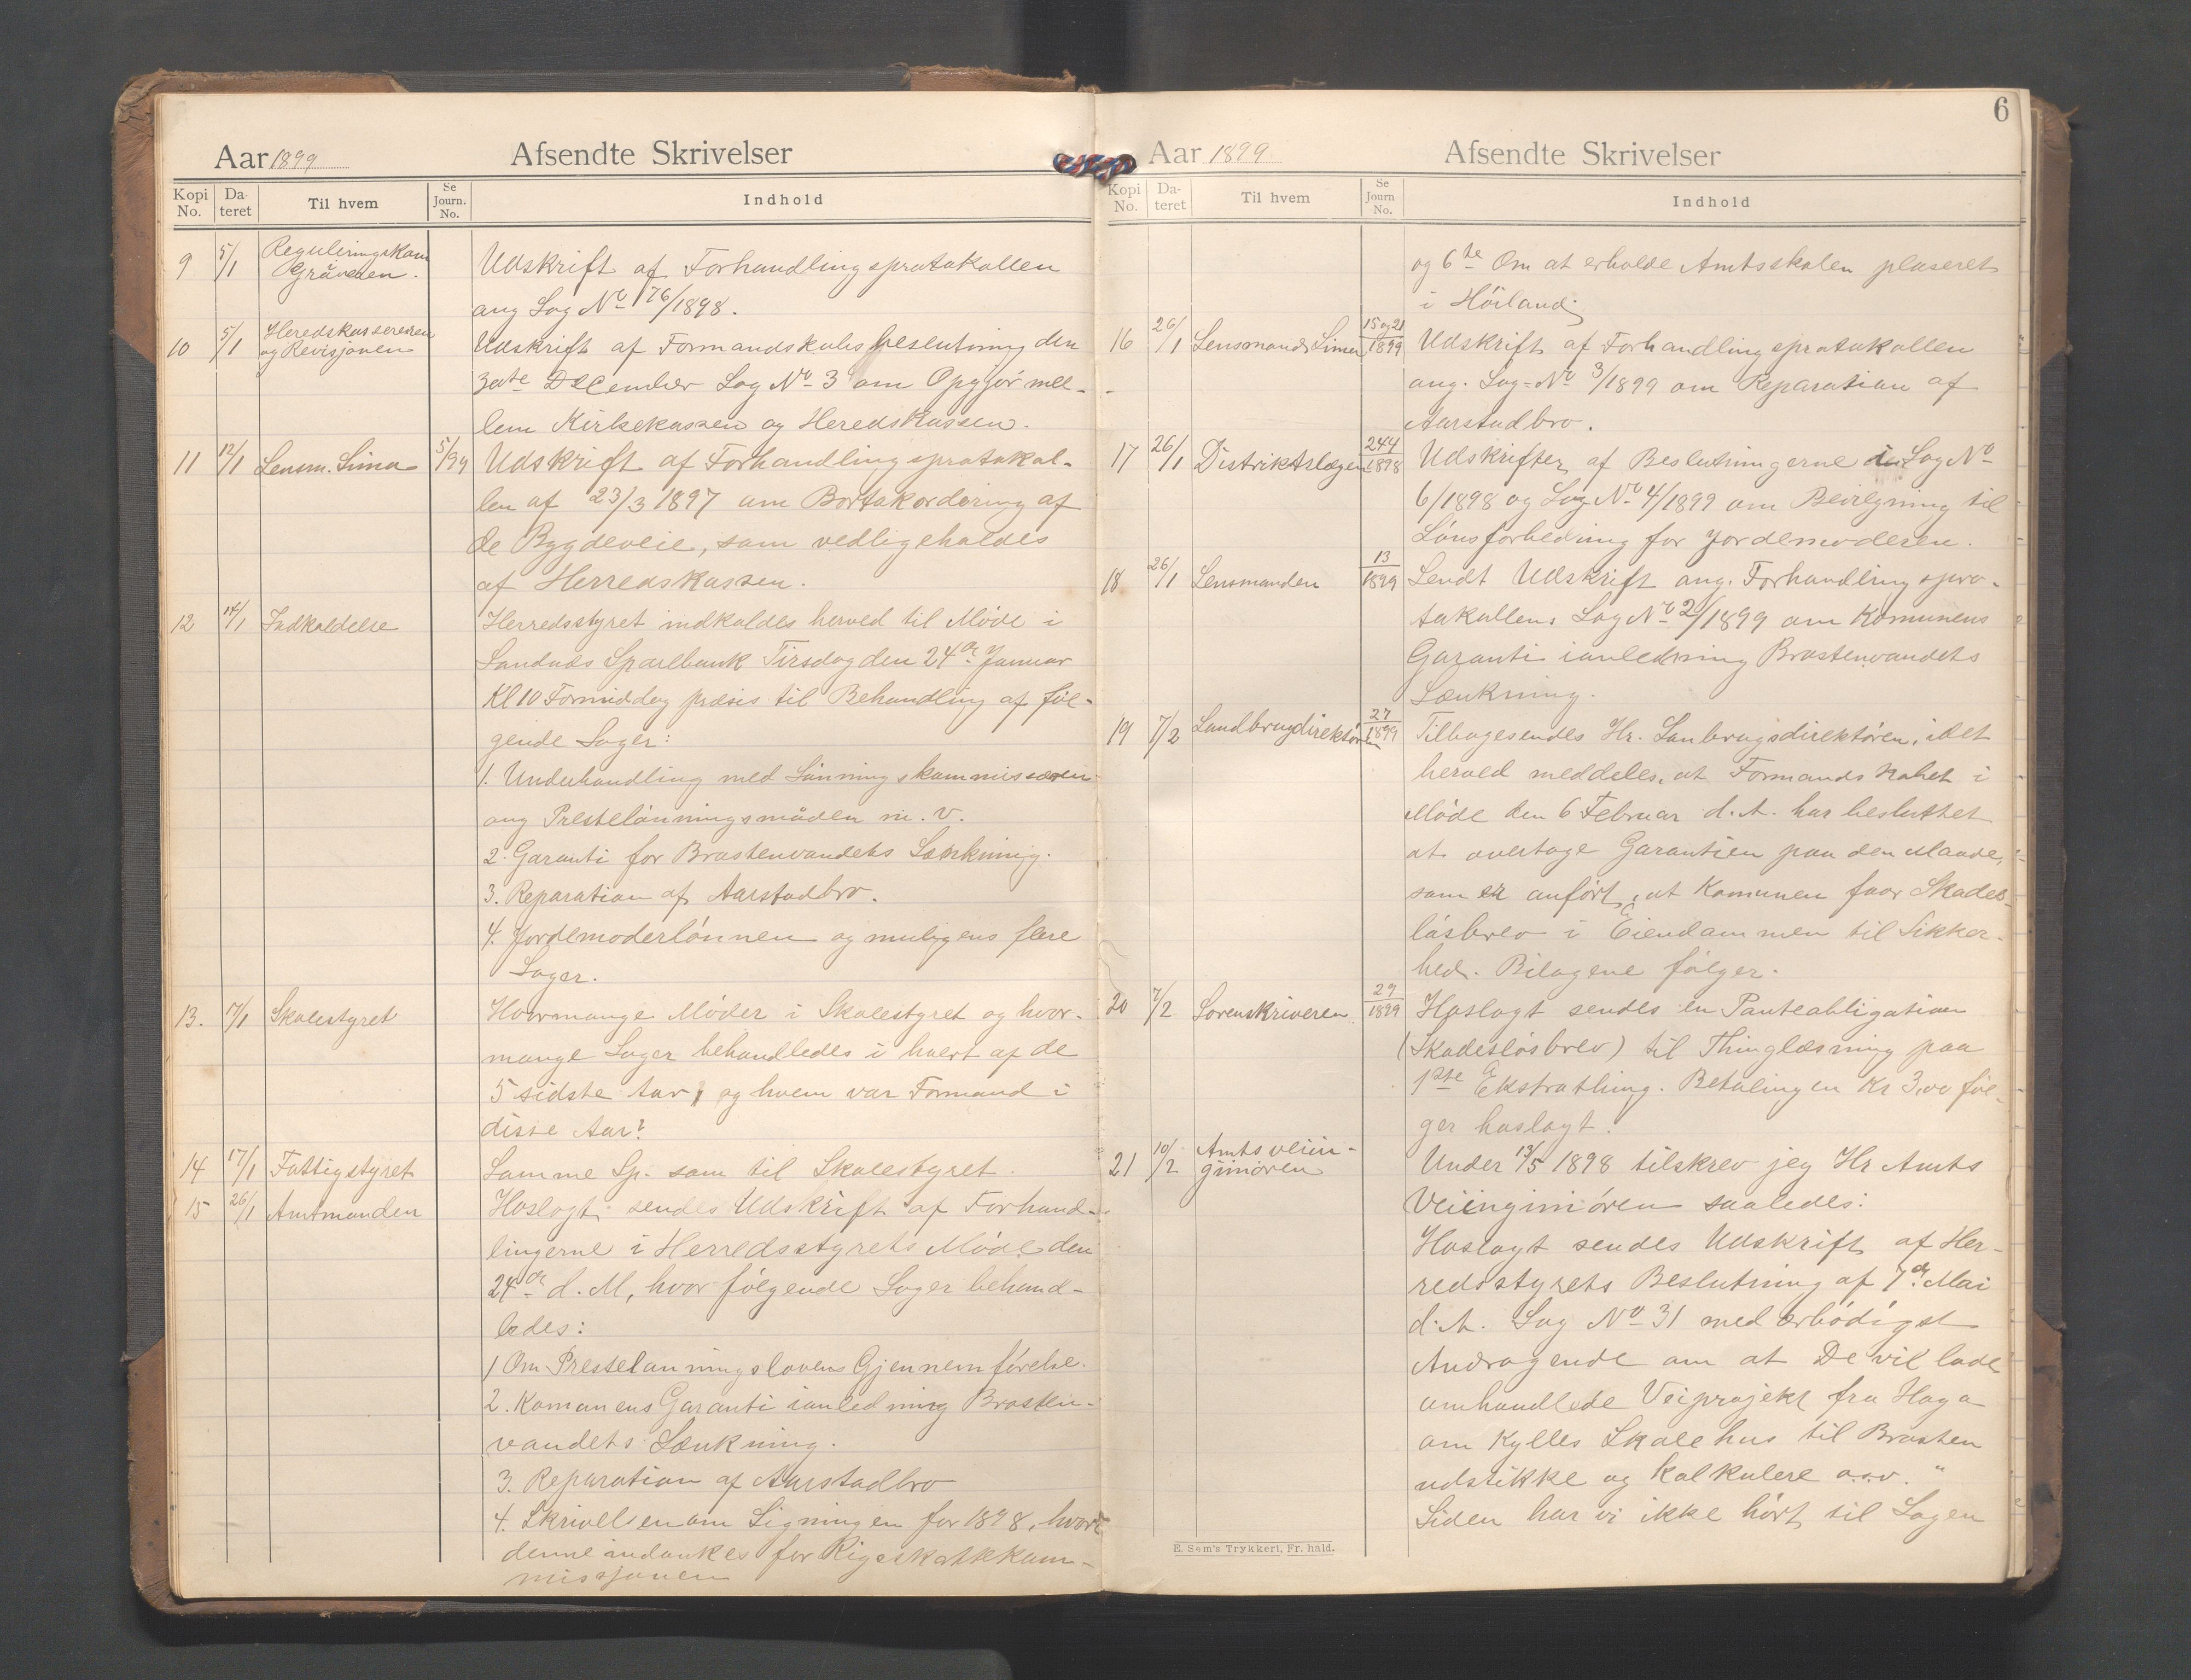 Aar 1899 Afsendte Skrivelser
Kopi No. Da-teret Til hvem Se Journ. No. Indhold
9 5/1 Reguleringskom Gråveren. Udskrift af Forhandlingsprotokollen
ang Sag No 76/1898.
10 5/1 Heredskasereren og Revisjonen Udskrift af Formandskabsbeslutning den
30te December Sag No 3 om Opgjör mel-
lem Kirkekassen og Heredskassen.
11 12/1 Lensm. Sima 5/99 Udskrift af Forhandlingsprotokol-
len af 23/3 1897 om Bortakordering af
de Bygdeveie, som vedligeholdes
af Herredskassen.
12 14/1 Indkaldelse Herredsstyret indkaldes herved til Möde i
Sandnæs Sparebank Tirsdag den 24de Januar
Kl 10 Formiddag præsis til Behandling af föl-
gende Sager:
1. Underhandling med Lönningskommissæren
ang Presteлönningsmåden m. v.
2. Garanti for Brastenvandets Sænkning.
3. Reparation af Aarstadbro.
4. Jordemoderlönnen og muligens flere
Sager.
13. 17/1 Skolestyret Hvormange Möder i Skolestyret og hvor-
mange Sager behandledes i hvert af de
5 sidste Aar, og hvem var Formand i
disse Aar?
14 17/1 Fattigstyret Samme Sp. som til Skolestyret.
15 26/1 Amtmanden Hoslagt sendes Udskrift af Forhand-
lingerne i Herredsstyrets Möde den
24de d. M, hvor fölgende Sager behand-
ledes:
1 Om Prestelønningslovens Gjennemförelse.
2. Komunens Garanti ianledning Brasten-
vandets Sænkning.
3. Reparation af Aarstadbro
4. Skrivelsen om Ligningen for 1898, hvori
denne indankes for Rigsskattekom-
missjonen
6
Aar 1899 Afsendte Skrivelser
Kopi No. Da-teret Til hvem Se Journ No. Indhold
og 6te Om at erholde Amtsskolen plaseret
i Höiland.
16 26/1 Lensmand Sima 15 og 21/1899 Udskrift af Forhandlingsprotokollen
ang. Sag-No 3/1899 om Reparation af
Aarstadbro.
17 26/1 Distriktslægen 244/1898 Udskrifter af Beslutningerne i Sag No
6/1898 og Sag No 4/1899 om Bevilgning til
Lönsforbedring for Jordemoderen.
18 26/1 Lensmanden 13/1899 Sendt Udskrift ang. Forhandlingspro-
tokollens Sag No 2/1899 om Komunens
Garanti ianledning Brastenvandets
Sænkning.
19 7/2 Landbrugdirektøren 27/1899 Tilbagesendes Hr. Lanbrugsdirektören, idet
herved meddeles, at Formandskabet i
Möde den 6 Februar d. A. har besluttet
at overtage Garantien paa den Maade,
som er anfört, at Komunen faar Skades-
lösbrev i Eiendommen til Sikker-
hed. Bilagene fölger.
20 7/2 Sorenskriveren 29/1899 Hoslagt sendes en Panteobligation
(Skadeslösbrev) til Thinglæsning paa
1ste Ekstrathing. Betalingen Kr 3,00 föl-
ger hoslagt.
21 10/2 Amtsveiin-
giniören Under 13/5 1898 tilskrev jeg Hr Amts
Veiinginiören saaledes:
Hoslagt sendes Udskrift af Her-
redsstyrets Beslutning af 7de Mai
d. A. Sag No 31 med ærbödigst
Andragende om at De vil lade
omhandlede Veiprojekt fra Haga
om Kylles Skolehus til Brasten
udstikke og kalkulere o.s.v. "
Siden har vi ikke hört til Sagen
E. Sem's Trykkeri, Fr. hald.